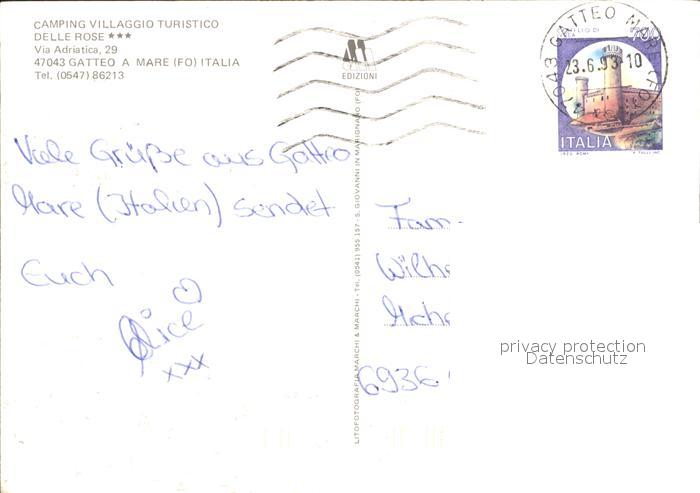 CAMPING VILLAGGIO TURISTICO
DELLE ROSE ★★★
Via Adriatica, 29
47043 GATTEO A MARE (FO) ITALIA
Tel. (0547) 86213
EDIZIONI
47043 GATTEO MARE (FO)
23.6.93-10
ITALIA
Viele Grüße aus Gatteo
Mare (Italien) sendet
Euch
Alice
xxx
LITOFOTOGRAFIA MARCHI & MARCHI - Tel. (0541) 955 157 - S. GIOVANNI IN MARIGNANO (FO)
Fam-
Wilhe
6936
privacy protection
Datenschutz